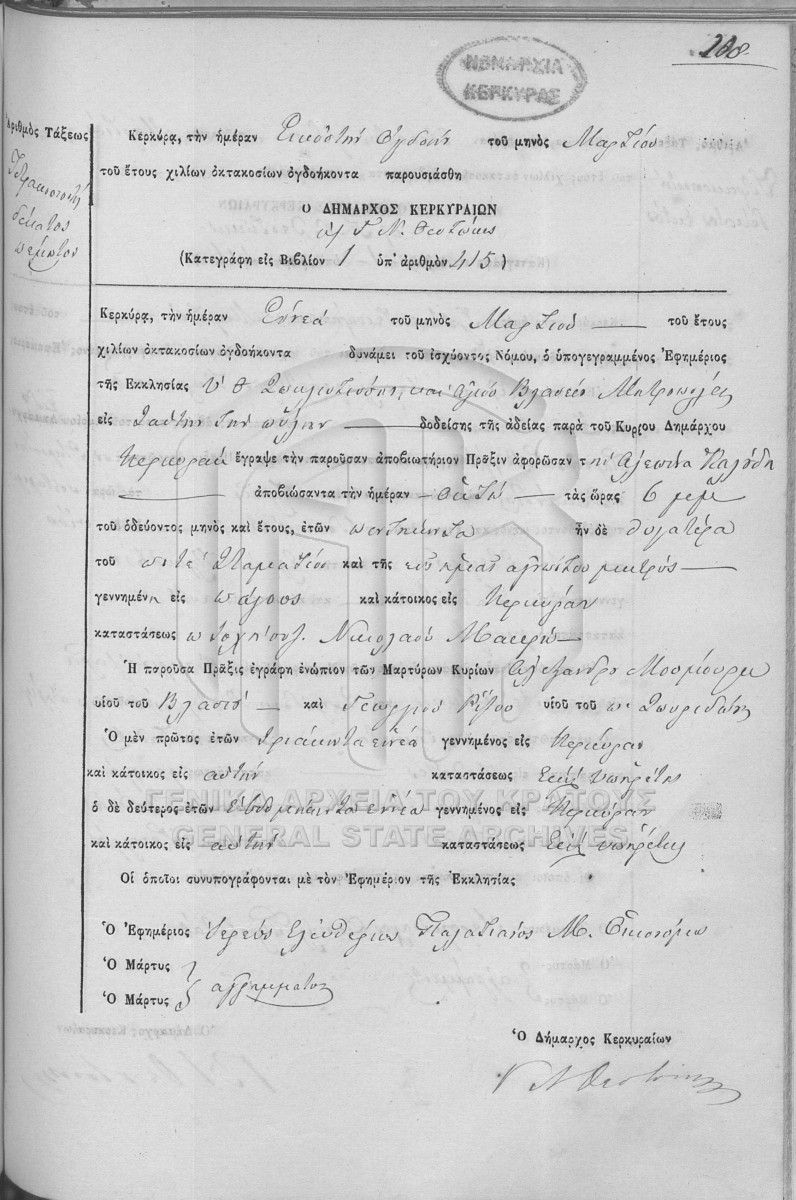 208
ΝΟΜΑΡΧΙΑ
ΚΕΡΚΥΡΑΣ
Ἀριθμὸς Τάξεως
Τετρακοσιοστὸς
δέκατος
πέμπτος
Κερκύρᾳ, τὴν ἡμέραν Εικοστὴν ὀγδόην τοῦ μηνὸς Μαρτίου
τοῦ ἔτους χιλίων ὀκτακοσίων ὀγδοήκοντα παρουσιάσθη
Ὁ ΔΗΜΑΡΧΟΣ ΚΕΡΚΥΡΑΙΩΝ
Γ Ν. Θεοτόκης
(Κατεγράφη εἰς Βιβλίον 1 ὑπ' ἀριθμὸν 415)
Κερκύρᾳ, τὴν ἡμέραν Εννεά τοῦ μηνὸς Μαρτίου τοῦ ἔτους
χιλίων ὀκτακοσίων ὀγδοήκοντα δυνάμει τοῦ ἰσχύοντος Νόμου, ὁ ὑπογεγραμμένος Ἐφημέριος
τῆς Ἐκκλησίας Υ Θ Σπηλιωτίσσης καὶ Ἁγίου Βλασίου Μητροπόλεως
εἰς ταύτην τὴν πόλιν δοθείσης τῆς ἀδείας παρὰ τοῦ Κυρίου Δημάρχου
Κερκυραίων ἔγραψε τὴν παροῦσαν ἀποβιωτήριον Πρᾶξιν ἀφορῶσαν τ
ἀποβιώσαντα τὴν ἡμέραν Ὀκτὼ τὰς ὥρας 6 μ μ
τοῦ ὁδεύοντος μηνὸς καὶ ἔτους, ἐτῶν πεντήκοντα ἦν δὲ θυγατέρα
τοῦ ποτὲ Σταματίου καὶ τῆς ἀγνώστου μητρός
γεννημέν εἰς καὶ κάτοικος εἰς Κερκύραν
καταστάσεως Νικολάου
Ἡ παροῦσα Πρᾶξις ἐγράφη ἐνώπιον τῶν Μαρτύρων Κυρίων Ἀλεξάνδρου
υἱοῦ τοῦ Βλασίου καὶ Γεωργίου υἱοῦ τοῦ Σπυρίδωνος
Ὁ μὲν πρῶτος ἐτῶν τριάκοντα ἐννέα γεννημένος εἰς Κερκύραν
καὶ κάτοικος εἰς αὐτήν καταστάσεως Ἐκκλ ὑπηρέτης
ὁ δὲ δεύτερος ἐτῶν ἑβδομήκοντα ἐννέα γεννημένος εἰς Κερκύραν
καὶ κάτοικος εἰς αὐτήν καταστάσεως Ἐκκλ ὑπηρέτης
Οἱ ὁποῖοι συνυπογράφονται μὲ τὸν Ἐφημέριον τῆς Ἐκκλησίας
Ὁ Ἐφημέριος Ἱερεὺς Ἐλευθέριος Παλατιανὸς Μ. Οἰκονόμος
Ὁ Μάρτυς
Ὁ Μάρτυς ἀγράμματοι
Ὁ Δήμαρχος Κερκυραίων
Γ Ν Θεοτόκης
ΓΕΝΙΚΑ ΑΡΧΕΙΑ ΤΟΥ ΚΡΑΤΟΥΣ
GENERAL STATE ARCHIVES